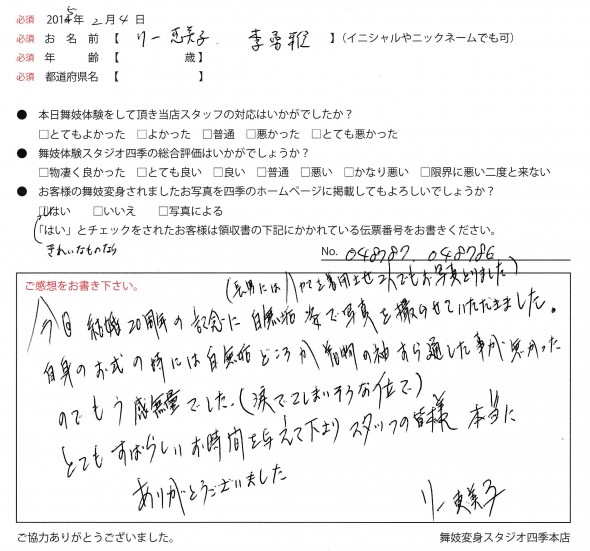 必須 2015年 2月4日
必須 お名前【 リー恵美子 李勇雅 】(イニシャルやニックネームでも可)
必須 年齢【 歳】
必須 都道府県名【 】
● 本日舞妓体験をして頂き当店スタッフの対応はいかがでしたか?
□とてもよかった □よかった □普通 □悪かった □とても悪かった
● 舞妓体験スタジオ四季の総合評価はいかがでしょうか?
□物凄く良かった □とても良い □良い □普通 □悪い □かなり悪い □限界に悪い二度と来ない
● お客様の舞妓変身されましたお写真を四季のホームページに掲載してもよろしいでしょうか?
□はい □いいえ □写真による
「はい」とチェックをされたお客様は領収書の下記にかかれている伝票番号をお書きください。
きれいなものなら
No. 048787. 048786
ご感想をお書き下さい。
(長男にはハカマを着用させ2人でもお写真とりました)
今日 結婚20周年の記念に白無垢姿で写真を撮らせていただきました。
自身のお式の時には白無垢どころか着物の袖すら通した事が無かった
のでもう感無量でした。(涙でてしまいそうな位で)
とてもすばらしいお時間を与えて下さりスタッフの皆様 本当に
ありがとうございました
リー恵美子
ご協力ありがとうございました。
舞妓変身スタジオ四季本店